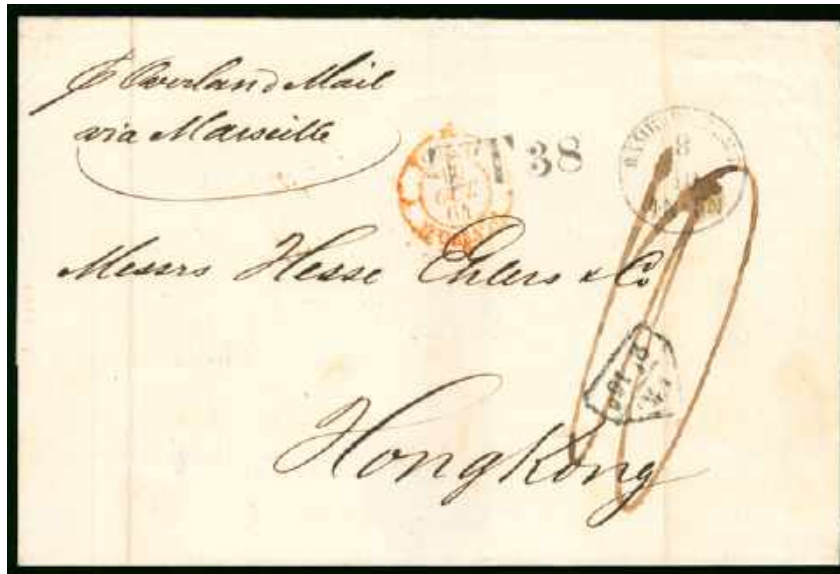 p Overland Mail
via Marseille
38
Messrs Hesse Ehlers & Co
HongKong